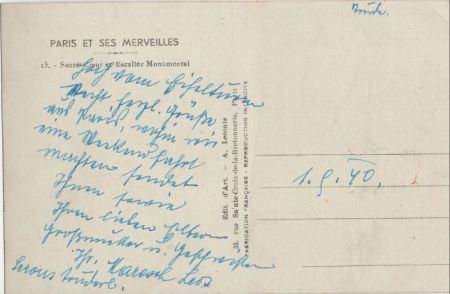 Trude.
PARIS ET SES MERVEILLES
13. - Sacré-Cœur et Escalier Monumental
Hoch vom Eifelturm
Recht herzl. Grüße
aus Paris, wohin wir
eine Weekend Fahrt
machten sendet
Ihnen sowie
Ihren lieben Eltern
Großmutter u. Geschwister
Ihr
Edit. d'Art. - A. Leconte
38, rue Sainte-Croix-de-la-Bretonnerie, Paris
FABRICATION FRANÇAISE - REPRODUCTION INTERDITE
1.9.40.